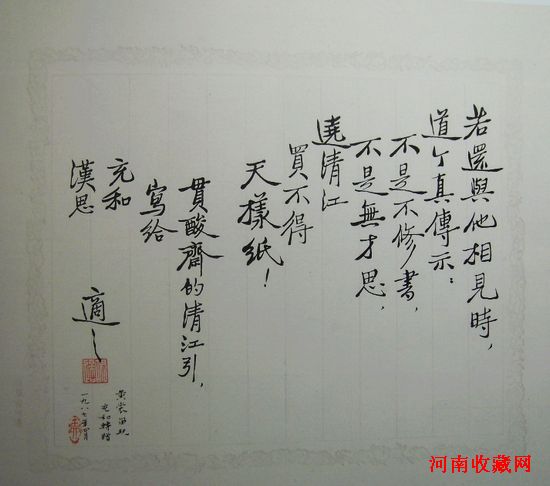 若還與他相見時，
道个真傳示：
不是不修書，
不是無才思，
遶清江
買不得
天樣紙！
貫酸齋的清江引，
寫給
充和
漢思
適之
黃裳留玩
充和轉贈
一九八七年四月
河南收藏网